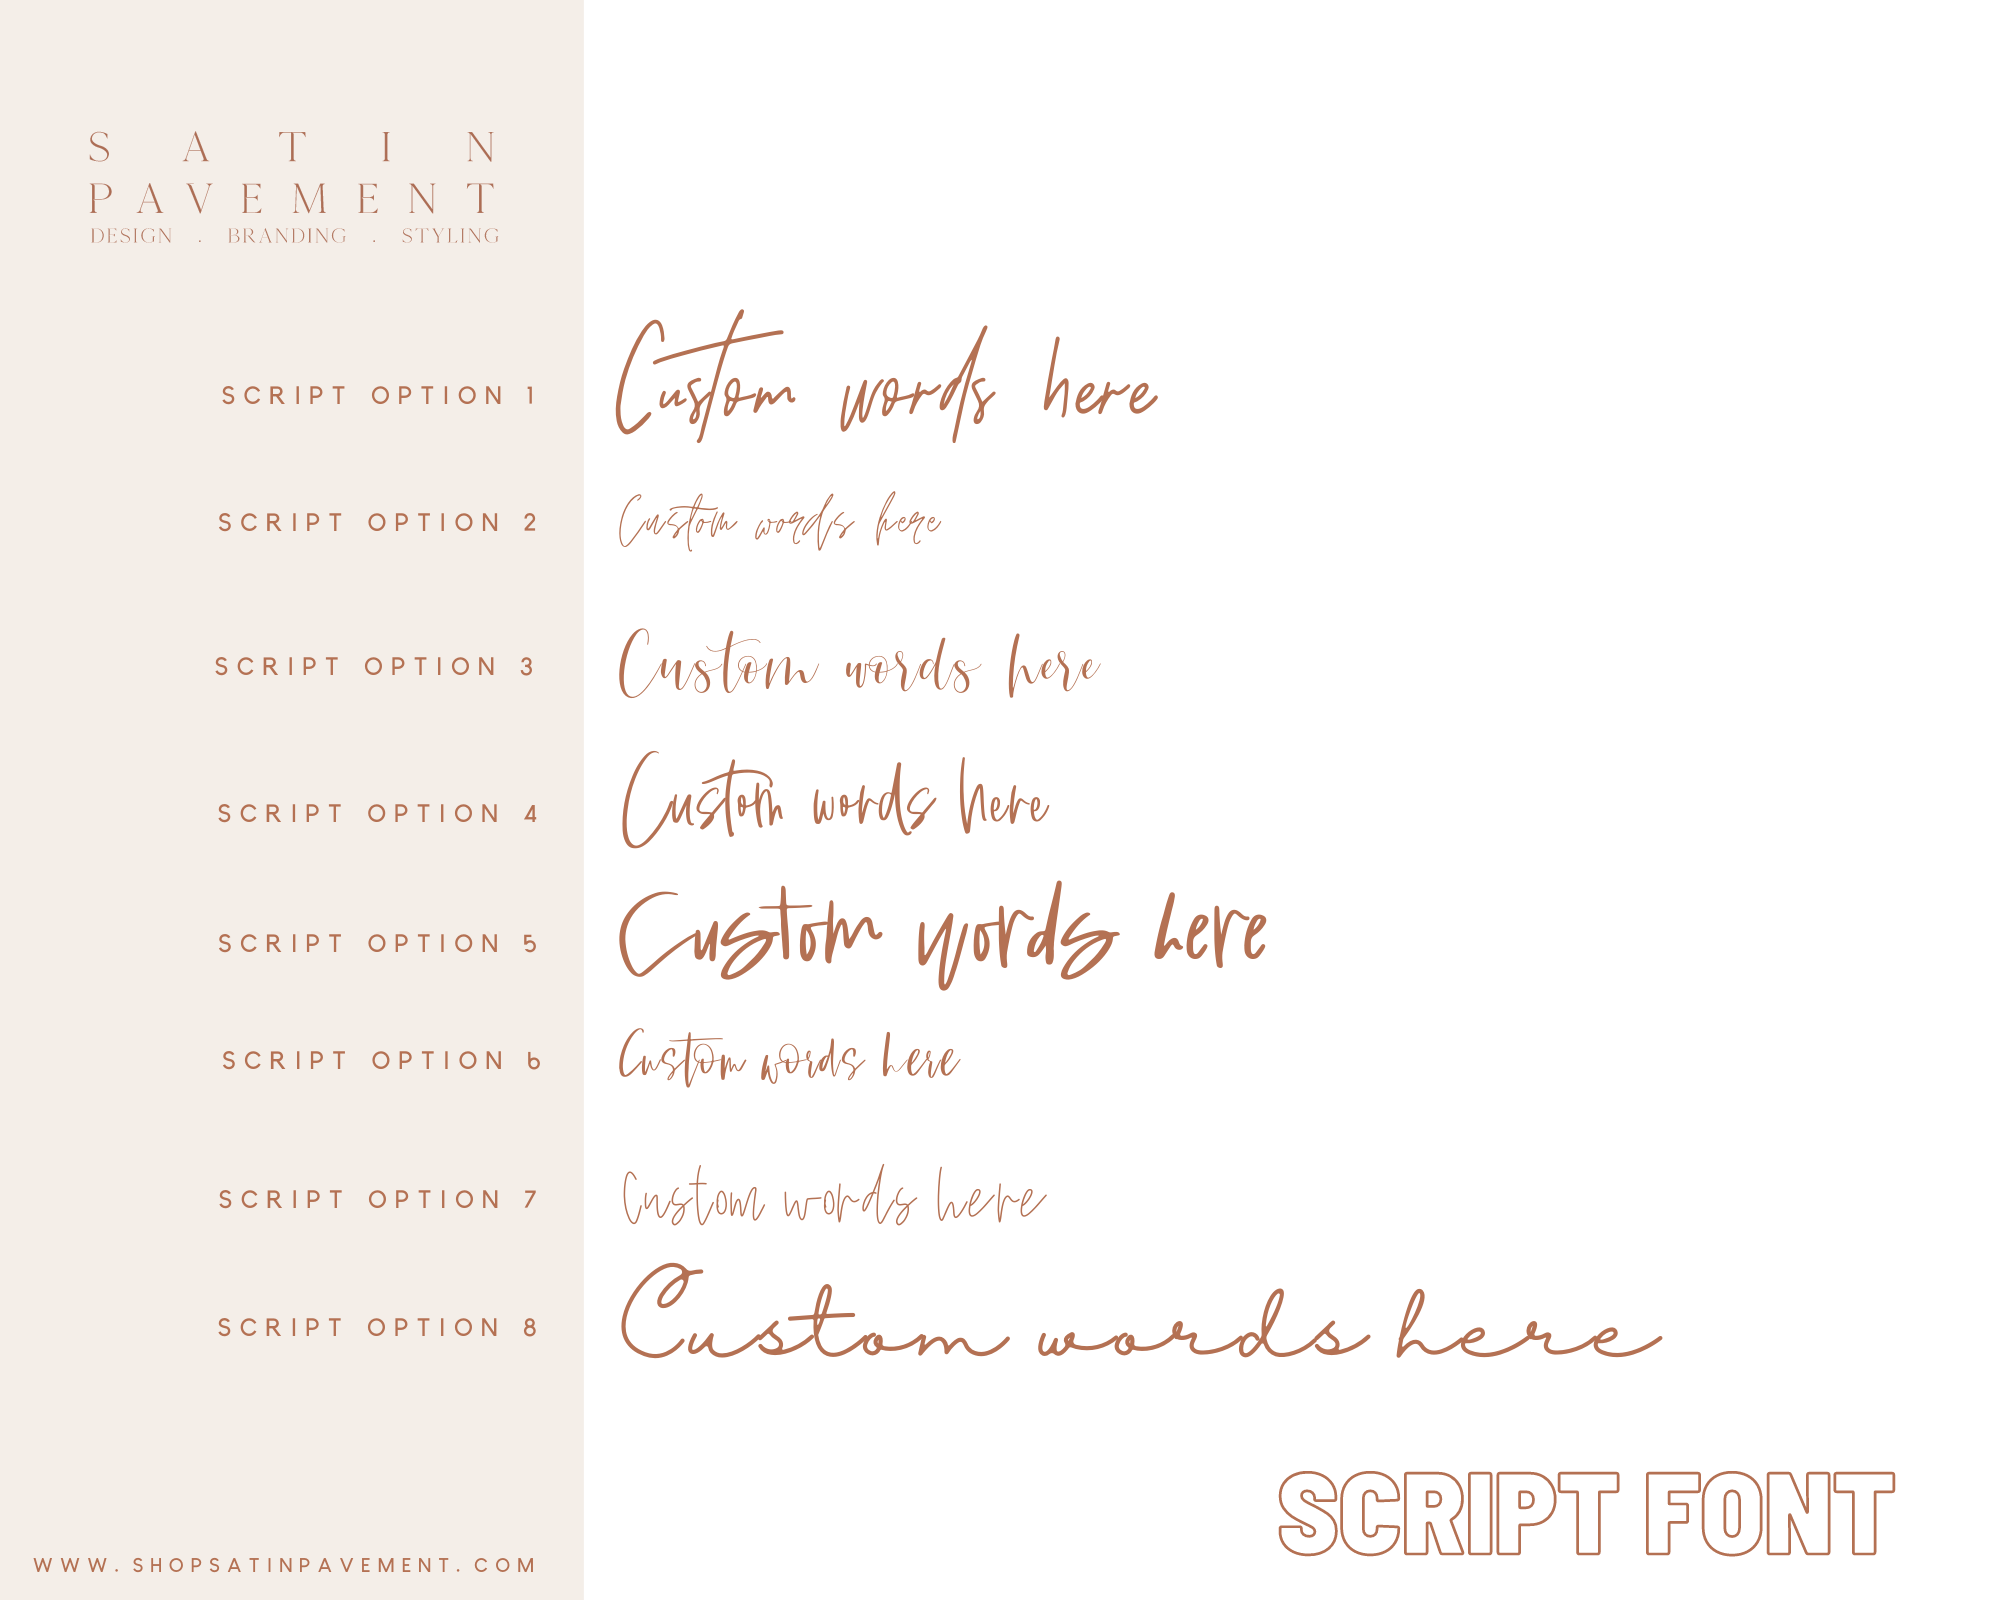 SATIN
PAVEMENT
DESIGN . BRANDING . STYLING
SCRIPT OPTION 1 Custom words here
SCRIPT OPTION 2 Custom words here
SCRIPT OPTION 3 Custom words here
SCRIPT OPTION 4 Custom words here
SCRIPT OPTION 5 Custom words here
SCRIPT OPTION 6 Custom words here
SCRIPT OPTION 7 Custom words here
SCRIPT OPTION 8 Custom words here
SCRIPT FONT
WWW.SHOPSATINPAVEMENT.COM